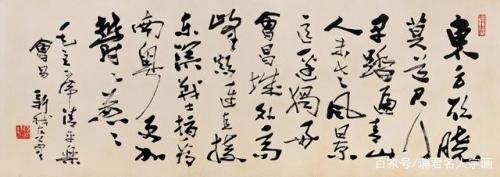 東方欲曉
莫道君行
早踏遍青山
人未老風景
這邊獨好
會昌城外高
峰顛連直接
東溟戰士指看
南粵更加
鬱々葱々
毛主席清平樂
會昌 新我左筆
百家号/君名人字画